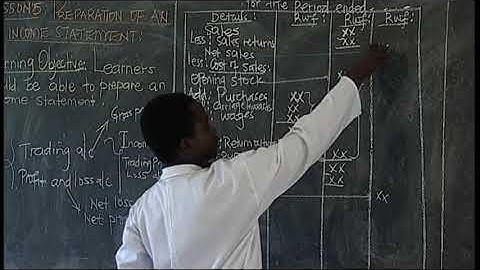 SSON 5 PREPARATION OF AN
INCOME STATEMENT:
rning Objective: Learners
ould be able to prepare an
ome statement:
Gross
Trading a/c
Profit and loss a/c
Net
Net pro
Inco
Trading
Loss
for the Period ended
Details: Rwf: Rwf: Rwf:
Sales xx
Less: Sales returns xx
Net sales
less: Cost of Sales:
opening Stock
Add: Purchases xx
carriage inwards xx
wages xx
Return outw
xx
xx
xx
xx